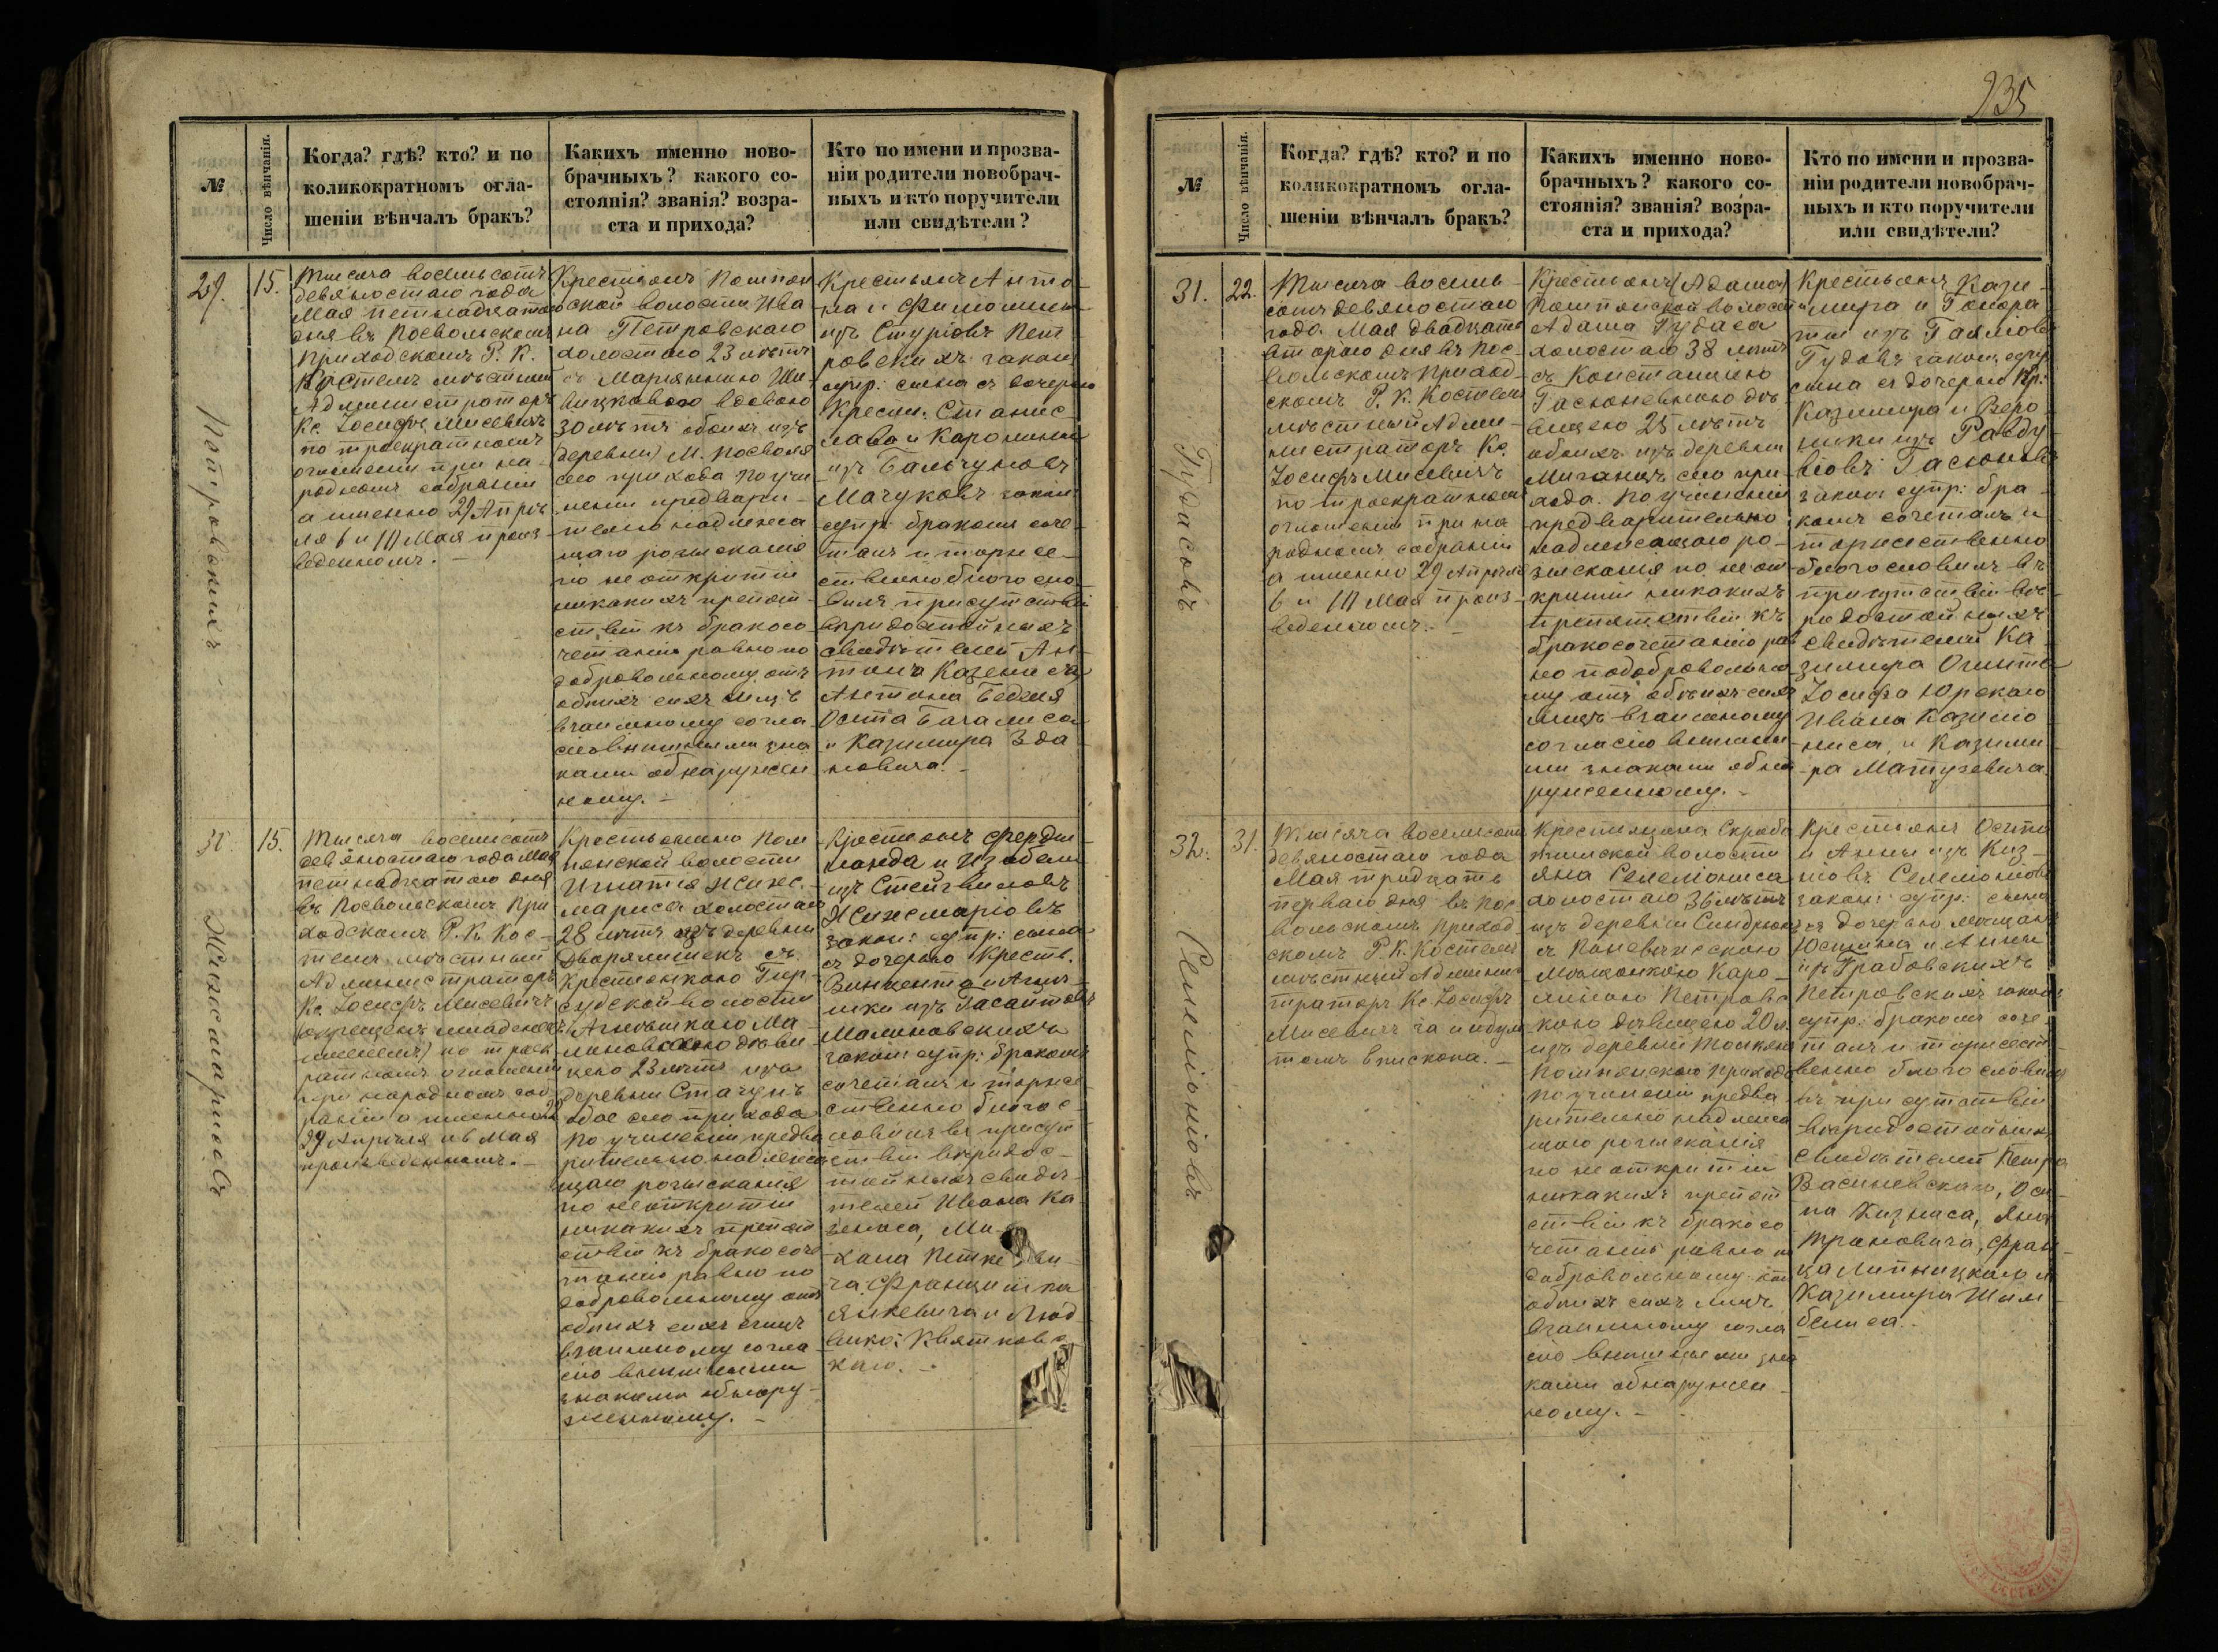 235
№
Число вѣнчанія.
Когда? гдѣ? кто? и по
коликократномъ огла-
шеніи вѣнчалъ бракъ?
Какихъ именно ново-
брачныхъ? какого со-
стоянія? званія? возра-
ста и прихода?
Кто по имени и прозва-
ніи родители новобрач-
ныхъ и кто поручители
или свидѣтели?
29.
15.
Петровскихъ
Тысяча восемьсотъ
девяностаго года
Мая петнадцатого
дня въ Посвольскомъ
приходскомъ Р. К.
Костелѣ мѣстный
Администраторъ
Кс. Іосифъ Мисевичъ
по троекратномъ
оглашеніи при на-
родномъ собраніи
а именно 29 Апрѣ
ля 6 и 10 Мая произ
веденномъ. —
Крестьянъ Помпян
ской волости Ива
на Петровскаго
холостаго 23 лѣтъ
съ Марьянною
вдовою
30 лѣтъ обоихъ изъ
деревни М. Посволя
сего прихода по учи
неніи предвари-
тельно надлежа
щаго розысканія
по не открытіи
никакихъ препят-
ствій къ бракосо-
четанію равно по
добровольному отъ
обоихъ сихъ лицъ
взаимному согла
сію внѣшними зна
ками обнаружен
ному. —
Крестьянъ Анто-
на и Филомены
изъ Стурiовъ Пет
ровскихъ закон.
супр: сына съ дочерью
Крестн. Станис-
лава и Каролины
изъ Бальчуновъ
Мачуковъ закон:
супр: бракомъ соче-
талъ и торже-
ственно благосло-
вилъ присутствіи
вѣридостойныхъ
свидѣтелей Ан-
тона
Антона
Осипа
и Казимира Зда
новича. —
30.
15.
Жинсмаріовъ
Тысяча восемьсотъ
девяностаго года Мая
петнадцатаго дня
въ Посвольскомъ При
ходскомъ Р. К. Кос-
телѣ мѣстный
Администраторъ
Кс. Іосифъ Мисевичъ
по троек
ратномъ оглашеніи
при народномъ соб
раніи а именно 22
29 Апрѣля и 6 Мая
произведенномъ. —
Крестьянина Пом
пянской волости
Игнатія Жинс-
мариса холостаго
28 лѣтъ изъ деревни
Дворялишекъ съ
Крестьянкою Гир-
судской волости
Агнѣшкою Ма-
линовскою дѣви
цею 23 лѣтъ изъ
деревни Стачунъ
обое сего прихода
по учиненіи предва
рительно надлежа
щаго розысканія
по неоткрытіи
никакихъ препят
ствій къ бракосоче
танію равно по
добровольному отъ
обоихъ сихъ лицъ
взаимному согла-
сію внѣшними
знаками обнару-
женному. —
Крестьянъ Ферди-
нанда и Изабели
изъ Стейгвиловъ
Жинсмаріовъ
закон: супр: сына
съ дочерью Крестн.
Винцента и Агнѣ-
шки изъ Гасаитовъ
Малиновскихъ
закон: супр: бракомъ
сочеталъ и торже
ственно благос-
ловилъ въ присут
ствіи вѣридос-
тойныхъ свидѣ-
телей Ивана Ка
зенаса, Ми-
хала Петкеви-
ча Францишка
Янкевича и Люд-
вика Квятковс-
каго. —
№
Число вѣнчанія.
Когда? гдѣ? кто? и по
коликократномъ огла-
шеніи вѣнчалъ бракъ?
Какихъ именно ново-
брачныхъ? какого со-
стоянія? званія? возра-
ста и прихода?
Кто по имени и прозва-
ніи родители новобрач-
ныхъ и кто поручители
или свидѣтели?
31.
22.
Гудасовъ
Тысяча восемь-
сотъ девяностаго
года Мая двадцать
втораго дня въ Пос-
вольскомъ приход-
скомъ Р. К. Костелѣ
мѣстный Адми-
нистраторъ Кс.
Іосифъ Мисевичъ
по троекратномъ
оглашеніи при на
родномъ собраніи
а именно 29 Апрѣля
6 и 10 Мая произ-
веденномъ. —
Крестьянъ (Адама)
Помпянской волости
Адама Гудаса
холостаго 38 лѣтъ
съ Констанціею
Гасюневною дѣ
вицею 25 лѣтъ
обоихъ изъ деревни
Миганцъ сего при
хода. По учиненіи
предварительно
надлежащаго ро-
зысканія по не от
крытіи никакихъ
препятствій къ
бракосочетанію рав
но по добровольно
му отъ обоихъ сихъ
лицъ взаимному
согласію внѣшни
ми знаками обна
руженному. —
Крестьянъ Кази-
мира и Гонора
ты изъ Гаяліовъ
Гудовъ закон. супр.
сына съ дочерью Кр:
Казимира и Веро-
ники изъ
Гасюновъ
закон: супр: бра-
комъ сочеталъ и
торжественно
благословилъ въ
присутствіи вѣ-
ридостойныхъ
свидѣтелей Ка
зимира Огинта
Іосифа Юрскаго
Ивана Казило
ниса, и Казими
ра Матузевича.
32.
31.
Селеліоніовъ
Тысяча восемьсотъ
девяностаго года
Мая тридцать
перваго дня въ Пос-
вольскомъ приход
скомъ Р. К. Костелѣ
мѣстный Админис
траторъ Кс. Іосифъ
Мисевичъ за индуль
томъ Епископа. —
Крестьянина Скробо
тишской волости
Яна Селеліониса
холостаго 36 лѣтъ
изъ деревни
съ Поневѣжскою
Мѣщанкою Каро-
линою Петровс-
кою дѣвицею 20 л.
изъ деревни
Помпянскаго прихода
по учиненіи предва
рительно надлежа
щаго розысканія
по не открытіи
никакихъ препят
ствій къ бракосо
четанію равно по
добровольному отъ
обоихъ сихъ лицъ
взаимному согла
сію внѣшними зна
ками обнаружен-
ному. —
Крестьянъ Осипа
и Анны изъ Киз-
ловъ Селеліоновъ
закон: супр: сына
съ дочерью мѣщанъ
Юстина и Анны
изъ Грабовскихъ
Петровскихъ закон:
супр: бракомъ соче-
талъ и торжест-
венно благословилъ
въ присутствіи
вѣридостойныхъ
Свидѣтелей Петра
Василевскаго, Оси-
па Кизласа, Яна
Трановича, Фран-
ца Липницкаго и
Казимира Шим
белиса. —